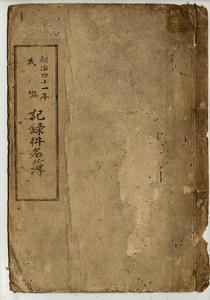 明治四十一年
民
記録件名簿